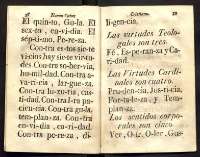 El quin-to, Gu-la. El
sex-to, en-vi-dia. El
sép-ti-mo, Pe-re-za.
Con-tra es-tos sie-te
vi-cios hay sie-te vir-tu-
des Con-tra so-ber-via,
hu-mil-dad. Con-tra a-
va-ri-cia, lar-gue-za.
Con-tra lu-xu-ria, cas-
ti-dad. Con-tra ira, pa-
cien-cia. Con-tra gu-la,
tem-plan-za. Con-tra
en-vi-dia, ca-ri-dad.
Con-tra pe-re-za, di-
li-gen-cia.
Las virtudes Teolo-
gales son tres.
Fé, Es-pe-ran-za y Ca-
ri-dad.
Las Virtudes Cardi-
nales son cuatro.
Pru-den-cia, Jus-ti-cia,
For-ta-le-za, y Tem-
plan-za.
Los sentidos corpo-
rales son cinco
Ver, O-ir, O-ler, Gus-